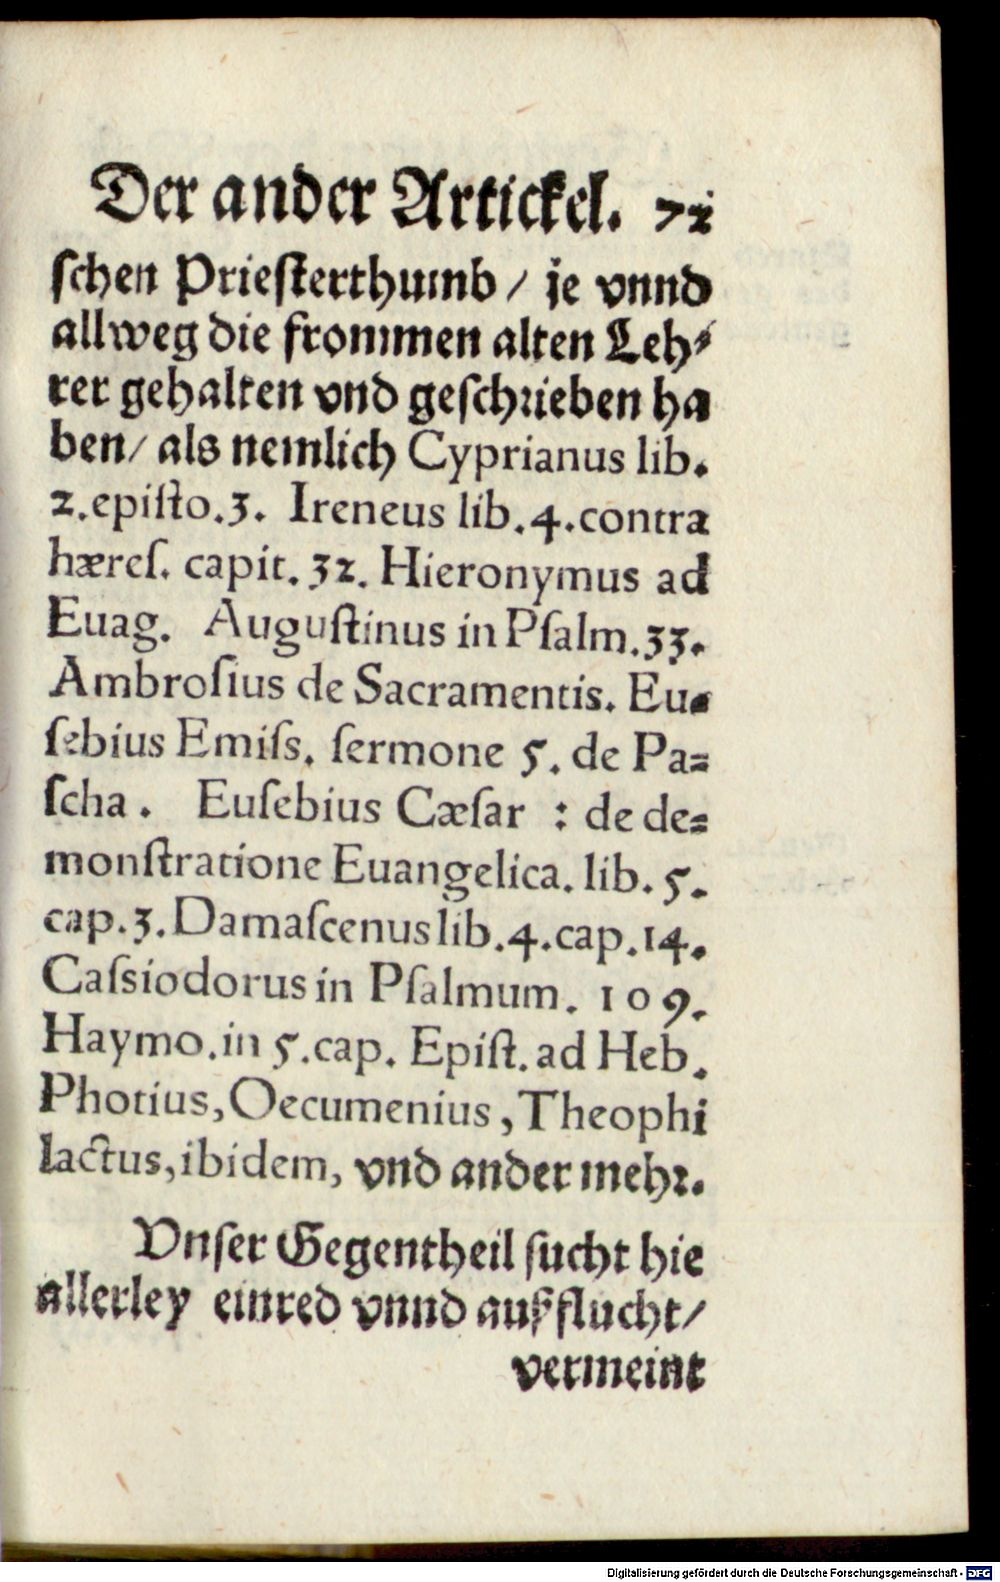 Der ander Artickel. 72
ſchen Prieſterthumb / je vnnd
allweg die frommen alten Leh⸗
rer gehalten vnd geſchrieben ha
ben / als nemlich Cyprianus lib.
2. epiſto. 3. Ireneus lib. 4. contra
hæreſ. capit. 32. Hieronymus ad
Euag. Auguſtinus in Pſalm. 33.
Ambroſius de Sacramentis. Eu⸗
ſebius Emiſs. ſermone 5. de Pa⸗
ſcha. Euſebius Cæſar : de de⸗
monſtratione Euangelica. lib. 5.
cap. 3. Damaſcenus lib. 4. cap. 14.
Caſsiodorus in Pſalmum. 109.
Haymo. in 5. cap. Epiſt. ad Heb.
Photius, Oecumenius, Theophi
lactus, ibidem, vnd ander mehr.
Vnſer Gegentheil ſucht hie
allerley einred vnnd außflucht /
vermeint
Digitalisierung gefördert durch die Deutsche Forschungsgemeinschaft - DFG